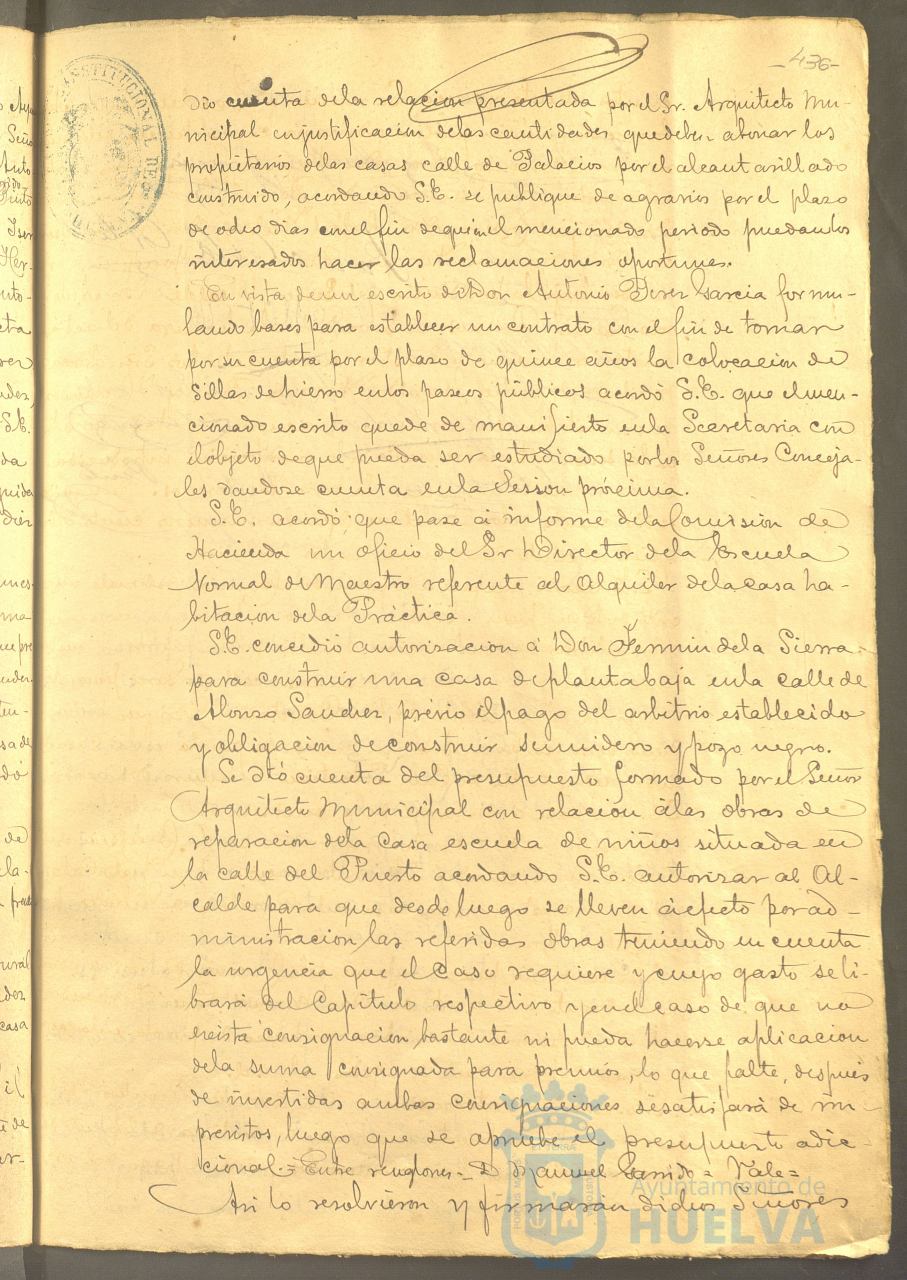 -436-
dio cuenta dela relacion presentada por el Sr. Arquitecto Mu-
nicipal en justificacion delas cantidades que deben abonar los
propietarios delas casas calle de Palacios por el alcantarillado
construido, acordando S.E. se publique de agravios por el plazo
de ocho dias con el fin de que en el mencionado periodo puedan los
interesados hacer las reclamaciones oportunas.
En vista de un escrito de Don Antonio Perez Garcia formu-
lando bases para establecer un contrato con el fin de tomar
por su cuenta por el plazo de quince años la colocacion de
Sillas de hierro en los paseos públicos acordó S.E. que el men-
cionado escrito quede de manifiesto en la Secretaria con
el objeto de que pueda ser estudiado por los Señores Conceja-
les dandose cuenta en la Session próxima.
S.E. acordó que pase á informe de la Comisión de
Hacienda un oficio del Sr Director de la Escuela
Normal de Maestro referente al alquiler de la casa ha-
bitacion de la Práctica.
S.E. concedió autorizacion á Don Fermin de la Sierra
para construir una casa de planta baja en la calle de
Alonzo Sanchez, prévio el pago del arbitrio establecido
y obligacion de construir sumidero y pozo negro.
Se dió cuenta del presupuesto formado por el Señor
Arquitecto Municipal con relacion á las obras de
reparacion de la Casa escuela de niños situada en
la calle del Puerto acordando S.E. autorizar al Al-
calde para que desde luego se lleven á efecto por ad-
ministracion las referidas obras teniendo en cuenta
la urgencia que el caso requiere y cuyo gasto se li-
brará del Capitulo respectivo y en el caso de que no
exista consignacion bastante ni pueda hacerse aplicacion
de la suma consignada para premios, lo que falte, despues
de invertidas ambas consignaciones se satisfará de im-
previstos, luego que se apruebe el presupuesto adi-
cional.= Entre renglones = D Manuel Garrido = Vale =
Asi lo resolvieron y firmarán dichos Señores
Ayuntamiento de
HUELVA